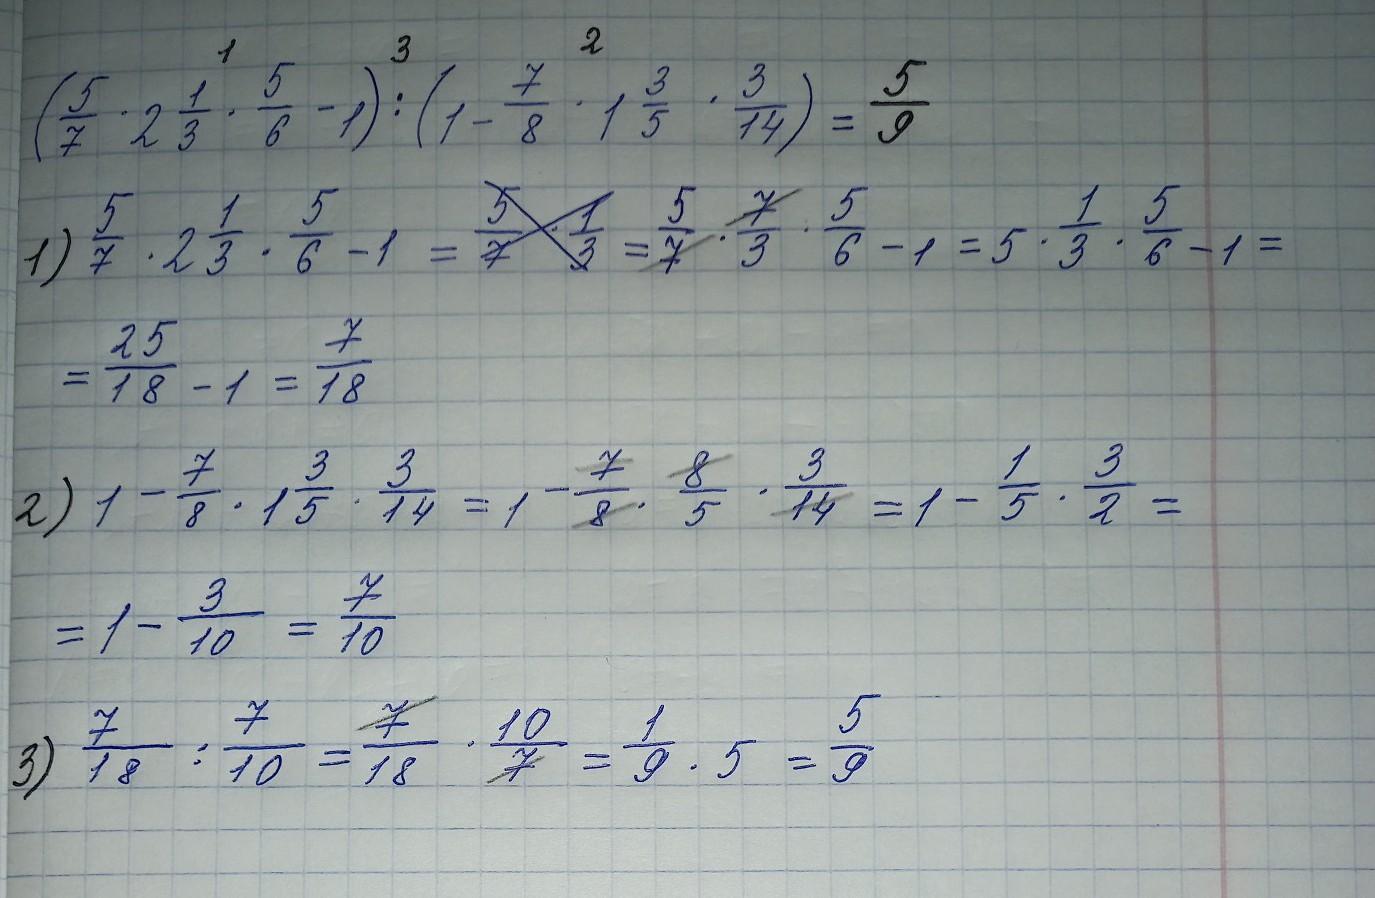 1 3 2
(5/7 · 2 1/3 · 5/6 - 1) : (1 - 7/8 · 1 3/5 · 3/14) = 5/9
1) 5/7 · 2 1/3 · 5/6 - 1 = 5/7 · 1/3 = 5/7 · 7/3 · 5/6 - 1 = 5 · 1/3 · 5/6 - 1 =
= 25/18 - 1 = 7/18
2) 1 - 7/8 · 1 3/5 · 3/14 = 1 - 7/8 · 8/5 · 3/14 = 1 - 1/5 · 3/2 =
= 1 - 3/10 = 7/10
3) 7/18 : 7/10 = 7/18 · 10/7 = 1/9 · 5 = 5/9